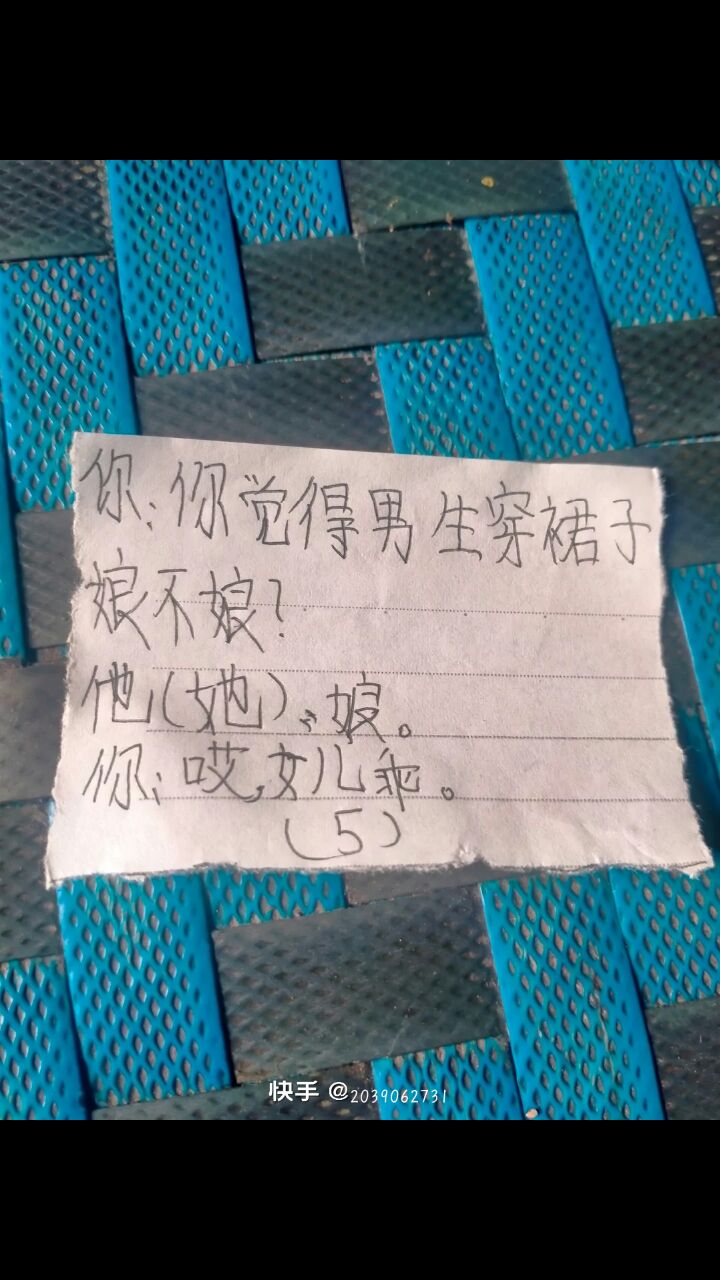 你：你觉得男生穿裙子
娘不娘？
他（她）：娘。
你：哎，女儿乖。
（5）
快手 @2039062731